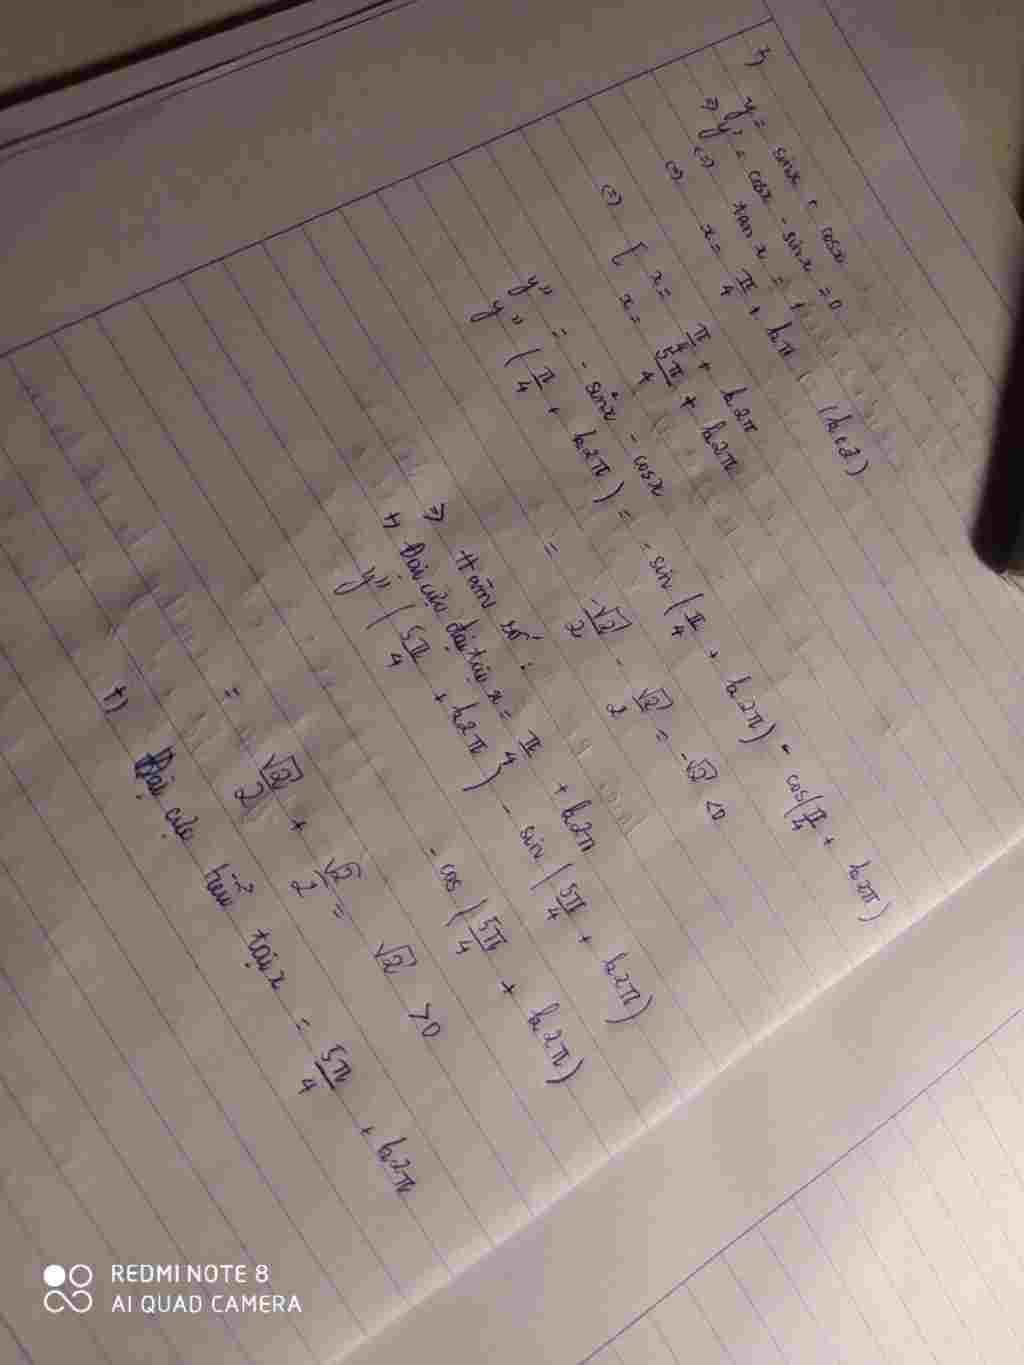 y = sinx + cosx
=> y' = cosx - sinx = 0
<=> tan x = 1
<=> x = π/4 + kπ (k∈Z)
<=> [ x = π/4 + k2π
x = 5π/4 + k2π
y'' = - sinx - cosx
y'' (π/4 + k2π) = - sin (π/4 + k2π) - cos(π/4 + k2π)
= -√2/2 - √2/2 = -√2 <0
=> Hàm số :
+) Đạt cực đại tại x = π/4 + k2π
y'' (5π/4 + k2π) - sin (5π/4 + k2π)
- cos (5π/4 + k2π)
= √2/2 + √2/2 = √2 >0
+) Đạt cực tiểu tại x = 5π/4 + k2π
REDMI NOTE 8
AI QUAD CAMERA